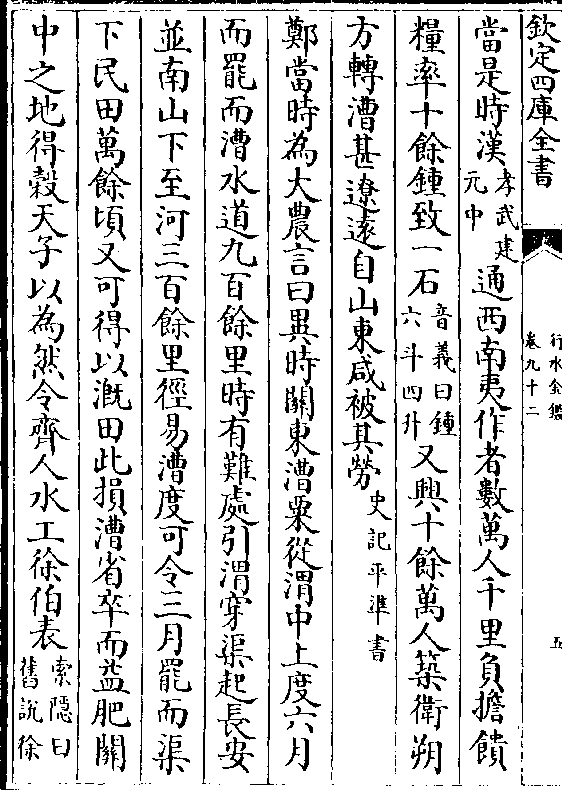 欽定四庫全書
行水金鑑
卷九十二
五
當是時漢孝武建元中通西南夷作者數萬人千里負擔饋
糧率十餘鍾致一石音義曰鍾六斗四升又興十餘萬人築衛朔
方轉漕甚遼遠自山東咸被其勞史記平準書
鄭當時為大農言曰異時關東漕粟從渭中上度六月
而罷而漕水道九百餘里時有難處引渭穿渠起長安
並南山下至河三百餘里徑易漕度可令三月罷而渠
下民田萬餘頃又可得以溉田此損漕省卒而益肥關
中之地得穀天子以為然令齊人水工徐伯表索隱曰舊説徐